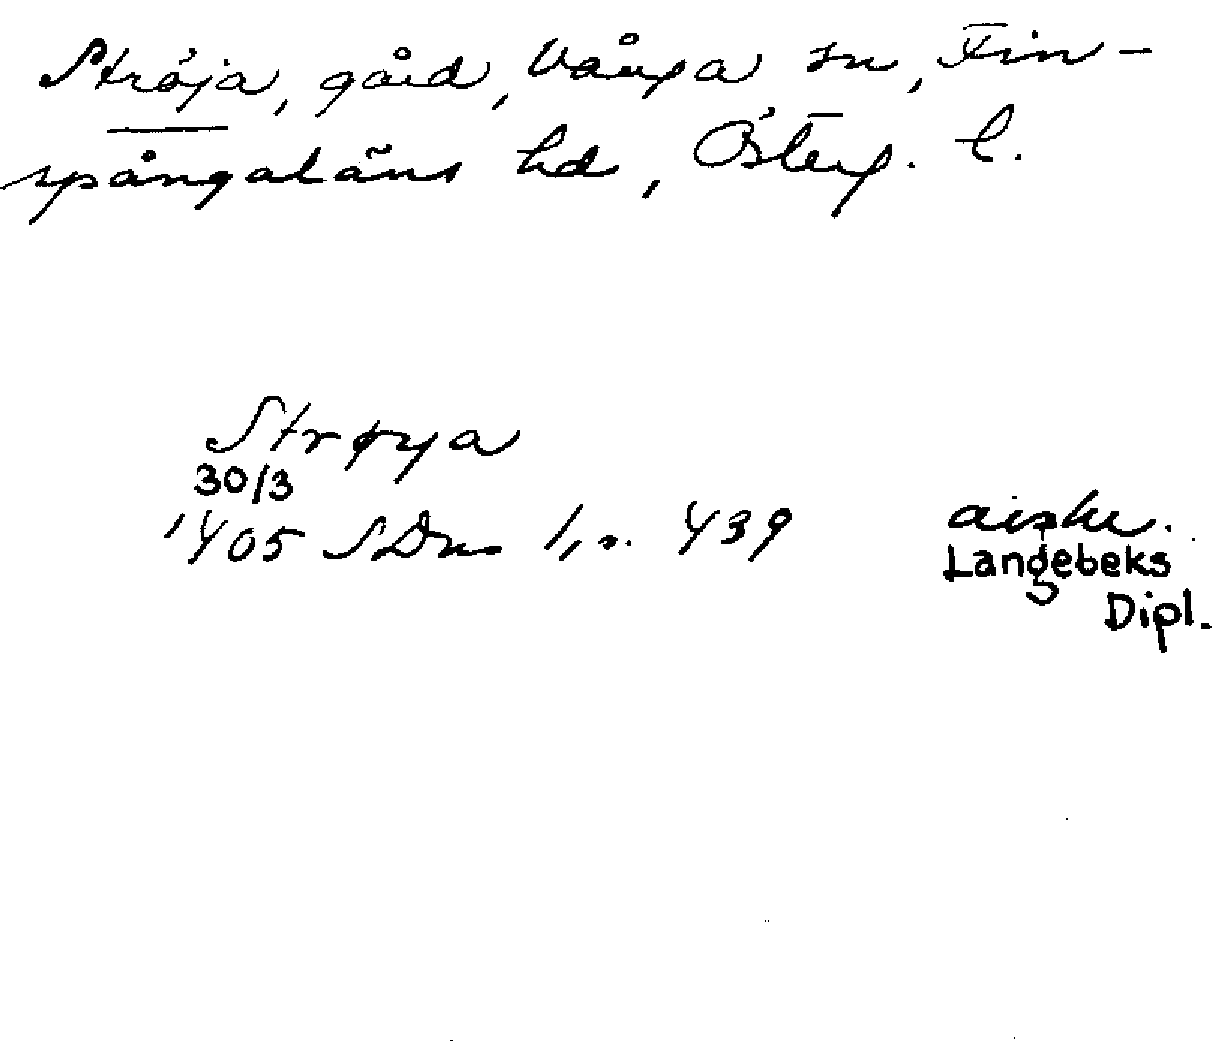 Ströja, gård, Vånga sn, Fin-
spångaläns hd, Österg. l.
Strøya
30/3
1405 SDns 1, s. 439 avskr.
Langebeks
Dipl.